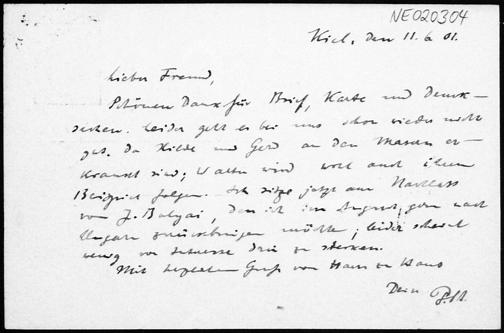 NE020304
Kiel, den 11. 6 01.
Lieber Freund,
Schönen Dank für Brief, Karte und Druck-
sachen. Leider geht es bei uns schon wieder nicht
gut, da Hilde und Gerd an den Masern er-
krankt sind; Walter wird wohl auch ihrem
Beispiel folgen. Ich sitze jetzt am Nachlass
von J. Bolyai, den ich im August gern nach
Ungarn zurückbringen möchte; leider scheint
wenig von Interesse drin zu stecken.
Mit herzlichem Gruß von Haus zu Haus
Dein P. St.